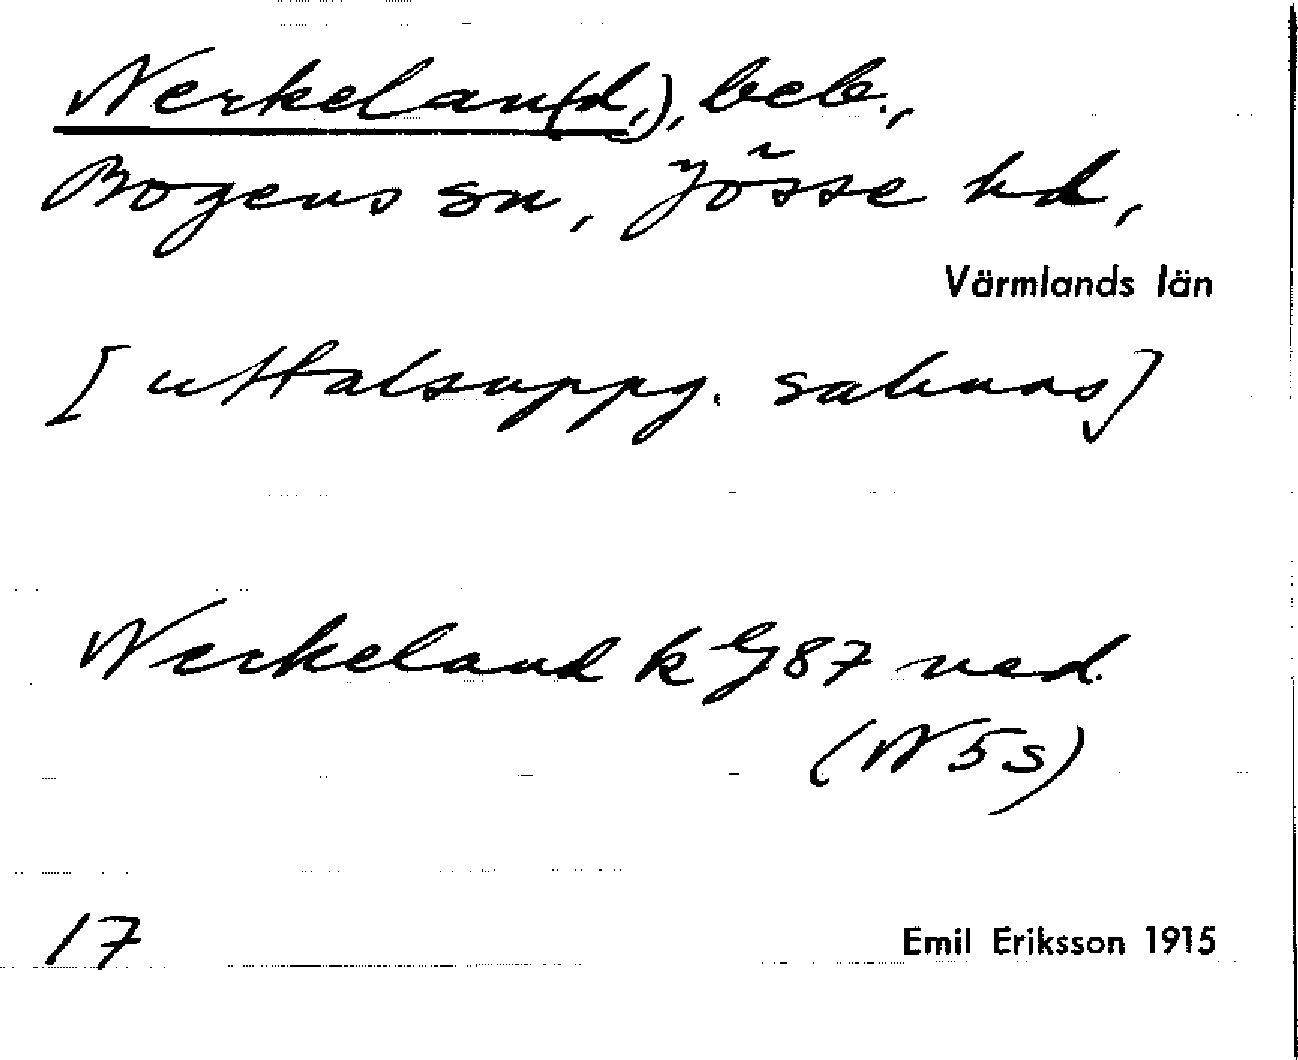 Nerkelan(d,), beb.,
Bogens sn, Jösse hd,
Värmlands län
[uttalsuppg. saknas]
Nerkeland k GJ 87 ned.
(N 5 s)
17
Emil Eriksson 1915